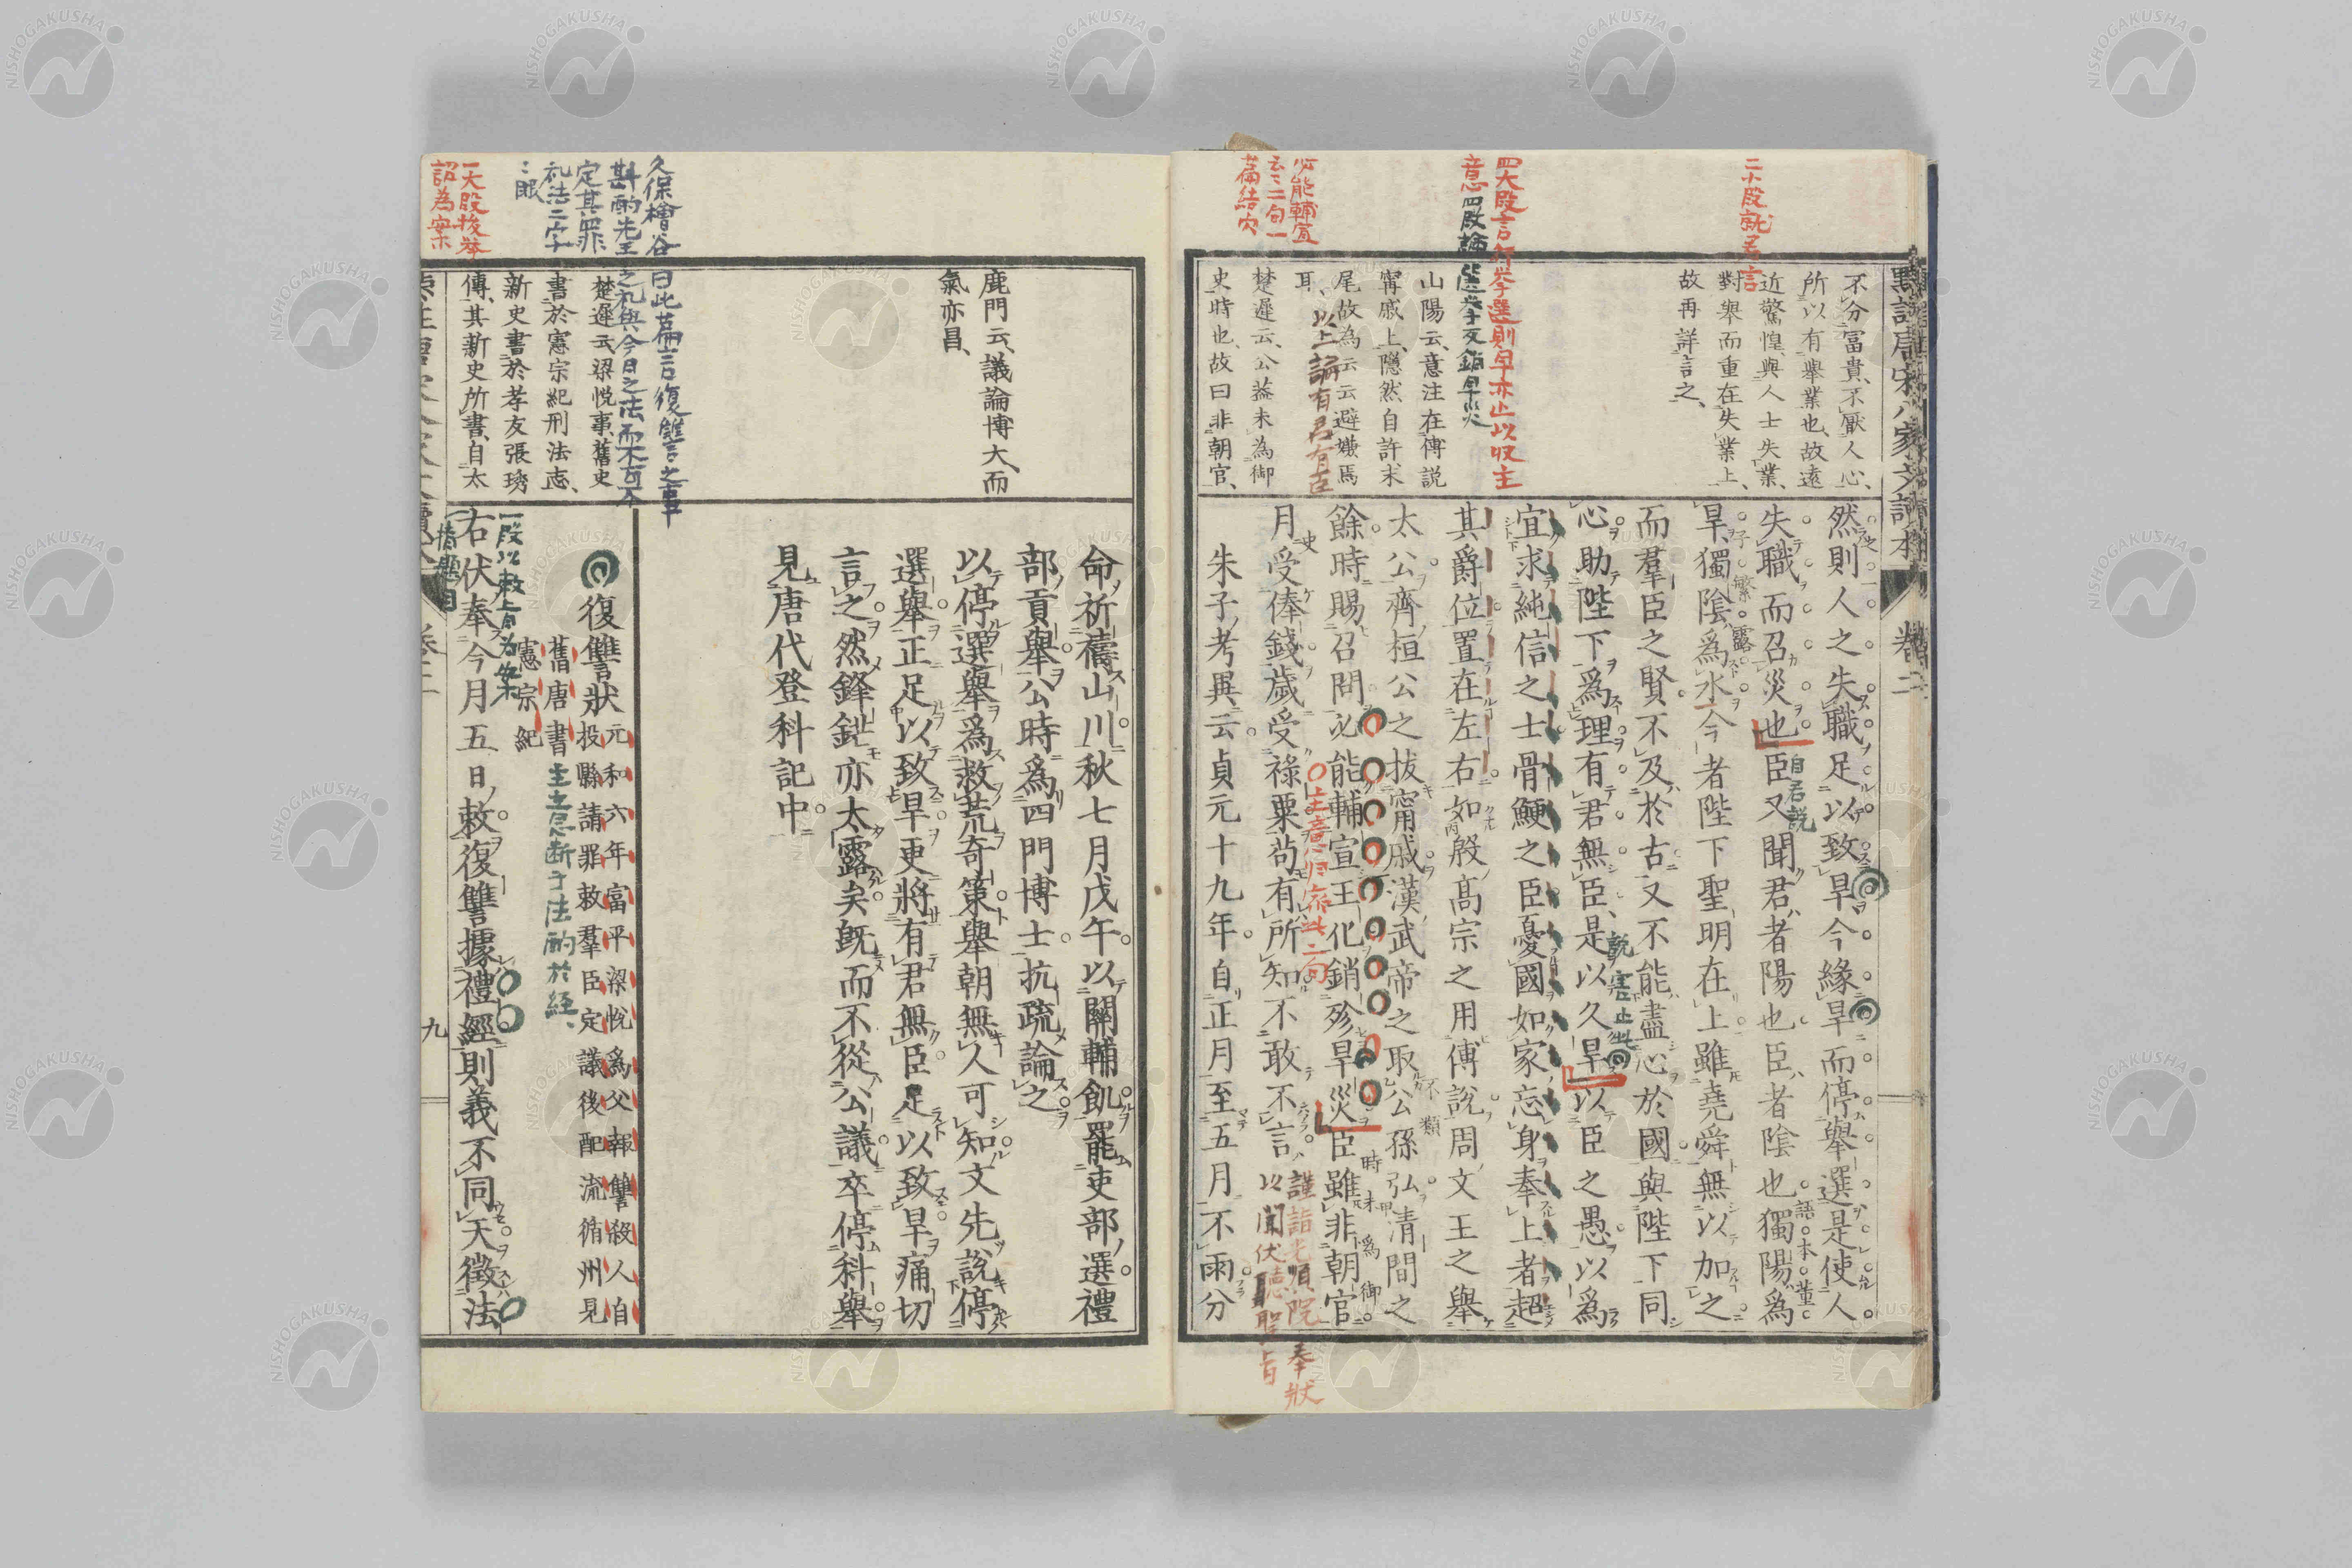 二小段就君言
四大段言行举選則旱亦止以収主
意四段論選举又銷旱災
必能輔宣
云云二句一
篇結穴
不分富貴、不厭人心、
所以有舉業也、故遠
近驚惶、與人士失業、
對舉而重在失業上、
故再詳言之、
山陽云、意注在傅説
甯戚上、隱然自許末
尾故為云云避嫌焉
耳、
以上論有君有臣
楚遲云、公葢未為御
史時也、故曰非朝官、
然則人之失職足以致旱今緣旱而停舉選是使人
失職而召災也臣又聞君者陽也臣者陰也獨陽爲
自君説
旱獨陰爲水今者陛下聖明在上雖堯舜無以加之
而羣臣之賢不及於古又不能盡心於國與陛下同
心助陛下爲理有君無臣是以久旱以臣之愚以爲
宜求純信之士骨鯁之臣憂國如家忘身奉上者超
其爵位置在左右如殷高宗之用傅説周文王之舉
太公齊桓公之拔甯戚漢武帝之取公孫弘清閒之
餘時賜召問必能輔宣王化銷殄旱災臣雖非朝官
月受俸錢歲受祿粟苟有所知不敢不言
謹詣光順院奉狀
以聞伏聽聖旨
朱子考異云貞元十九年自正月至五月不雨分
命祈禱山川秋七月戊午以關輔飢罷吏部選禮
部貢舉公時爲四門博士抗疏論之
以停選舉爲救荒奇策舉朝無人可知文先說停
選舉正足以致旱更將有君無臣足以致旱痛切
言之然鋒鋩亦太露矣既而不從公議卒停科舉
見唐代登科記中
鹿門云、議論博大而
氣亦昌、
久保檜谷曰此篇言復讐言之事
斟酌先王之礼與今日之法而不可不
定其罪
礼法二字
一大段援举
詔為案
楚遲云梁悦事、舊史
書於憲宗紀刑法志、
新史書於孝友張琇
傳、其新史所書、自太
復讐狀
元和六年富平梁悅爲父報讐殺人自
投縣請罪敕羣臣定議後配流循州見
舊唐書
憲宗紀
主意断于法酌於経、
一段以敕旨為案
右伏奉今月五日敕復讐據禮經則義不同天徵法
九